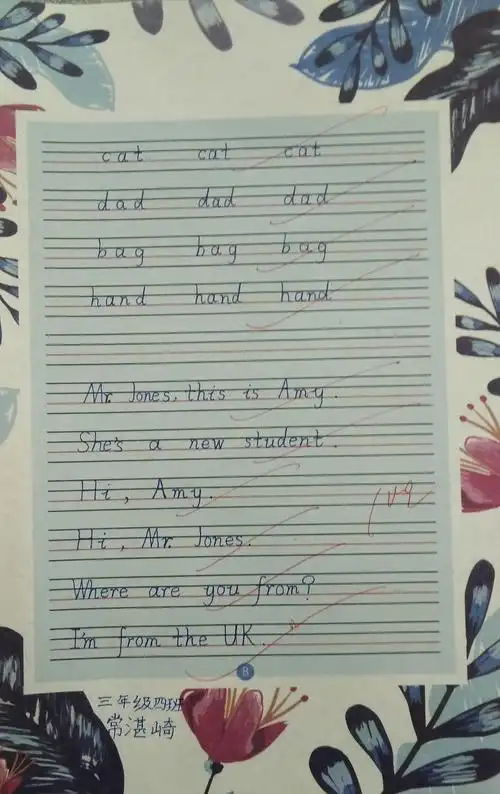 cat cat cat
dad dad dad
bag bag bag
hand hand hand
Mr. Jones, this is Amy.
She's a new student.
Hi, Amy.
Hi, Mr. Jones.
Where are you from?
I'm from the UK.
8
三年级四班
常湛崎